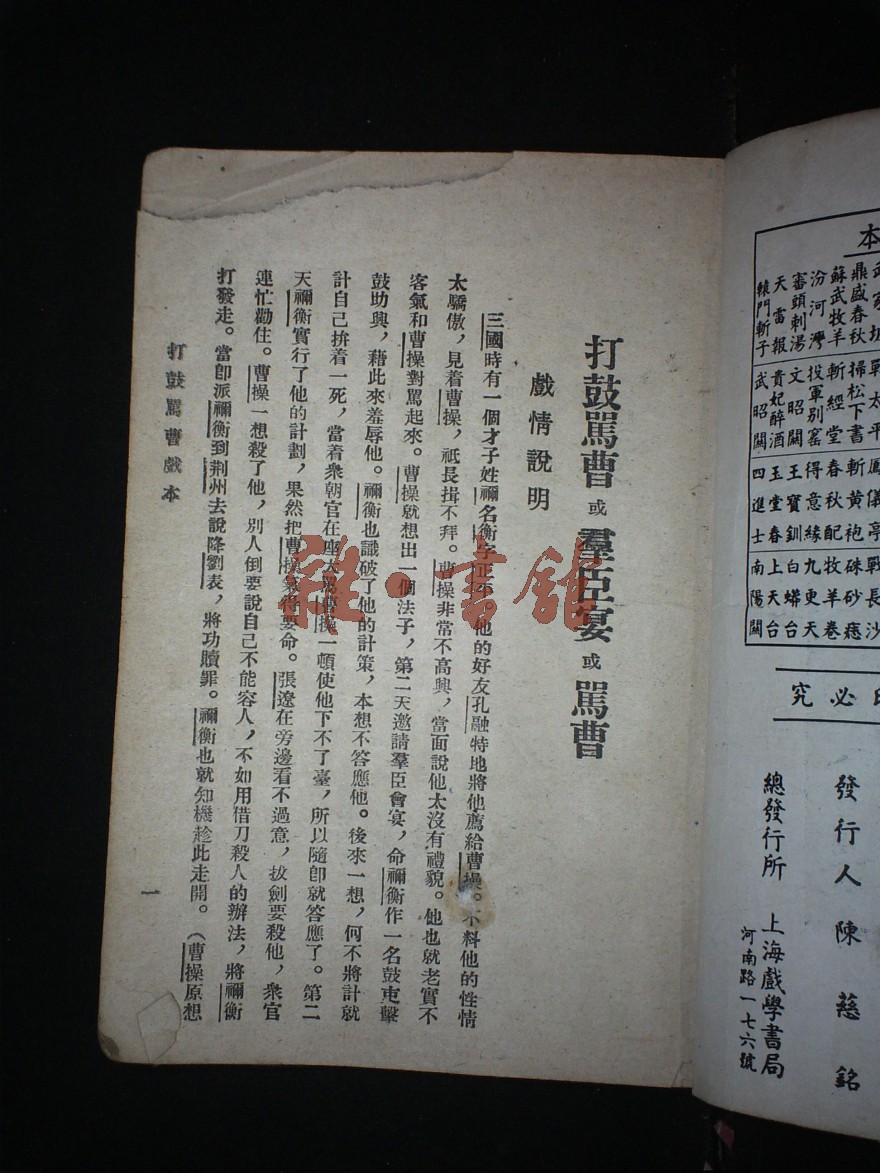 本
武家坡
鼎盛春秋
蘇武牧羊
汾河灣
審頭刺湯
天雷報
轅門斬子
戰太平
掃松下書
斬經堂
投軍別窰
文昭關
貴妃醉酒
武昭關
鳳儀亭
斬黃袍
春秋配
得意緣
王寶釧
玉堂春
四進士
戰長沙
硃砂痣
牧羊卷
九更天
白蟒台
上天台
南陽關
必究
發行人陳慈銘
總發行所 上海戲學書局
河南路一七六號
打鼓罵曹或羣臣宴或罵曹
戲情說明
三國時有一個才子姓禰名衡字正平他的好友孔融特地將他薦給曹操。不料他的性情
太驕傲，見着曹操，祇長揖不拜。曹操非常不高興，當面說他太沒有禮貌。他也就老實不
客氣和曹操對罵起來。曹操就想出一個法子，第二天邀請羣臣會宴，命禰衡作一名鼓吏擊
鼓助興，藉此來羞辱他。禰衡也識破了他的計策，本想不答應他。後來一想，何不將計就
計自己拚着一死，當着衆朝官在座大罵曹操一頓使他下不了臺，所以隨卽就答應了。第二
天禰衡實行了他的計劃，果然把曹操氣得要命。張遼在旁邊看不過意，拔劍要殺他，衆官
連忙勸住。曹操一想殺了他，別人倒要說自己不能容人，不如用借刀殺人的辦法，將禰衡
打發走。當卽派禰衡到荆州去說降劉表，將功贖罪。禰衡也就知機趁此走開。（曹操原想
打鼓罵曹戲本
一
雜·書館